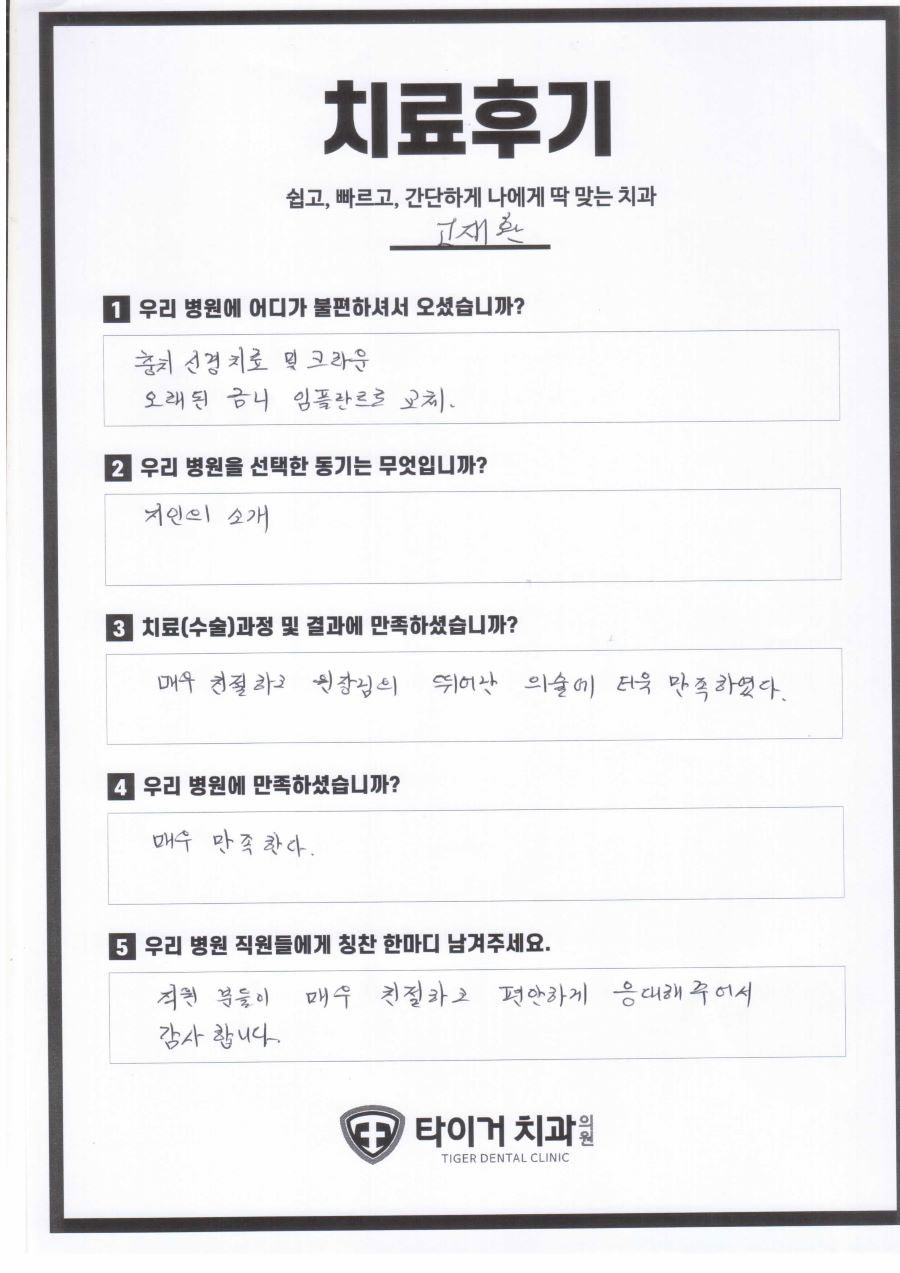 치료후기
쉽고, 빠르고, 간단하게 나에게 딱 맞는 치과
고재환
1 우리 병원에 어디가 불편하셔서 오셨습니까?
충치 신경치료 및 크라운
오래된 금니 임플란트로 교체.
2 우리 병원을 선택한 동기는 무엇입니까?
지인의 소개
3 치료(수술)과정 및 결과에 만족하셨습니까?
매우 친절하고 원장님의 뛰어난 의술에 더욱 만족하였다.
4 우리 병원에 만족하셨습니까?
매우 만족한다.
5 우리 병원 직원들에게 칭찬 한마디 남겨주세요.
직원 분들이 매우 친절하고 편안하게 응대해주어서
감사합니다.
타이거 치과의원
TIGER DENTAL CLINIC